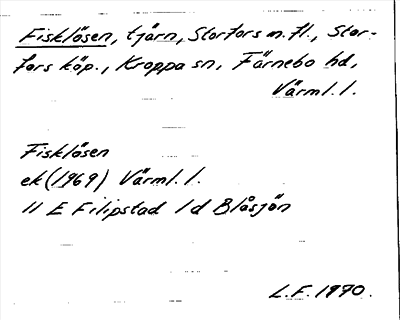 Fisklösen, tjärn, Storfors m.fl., Stor-
fors köp., Kroppa sn, Färnebo hd,
Värml. l.
Fisklösen
ek (1969) Värml. l.
11 E Filipstad 1d Blåsjön
L.F. 1970.